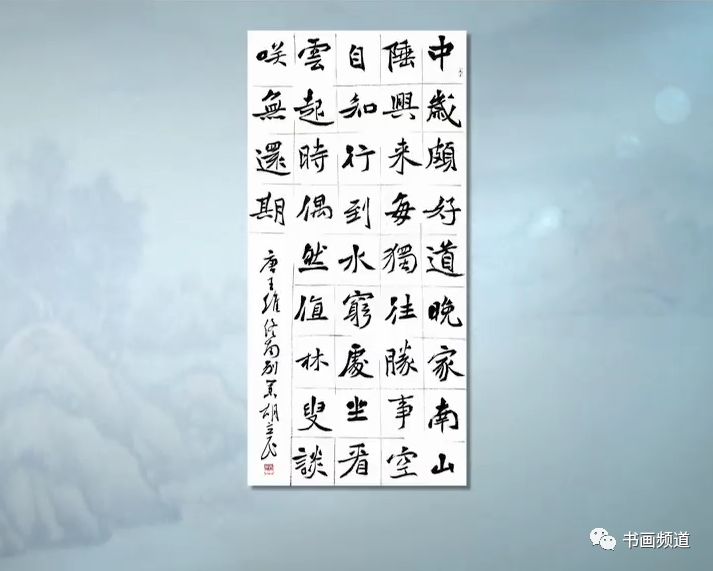 中歲頗好道晚家南山
陲興来每獨往勝事空
自知行到水窮處坐看
雲起時偶然值林叟談
咲無還期
唐王維终南别業胡立民
书画频道